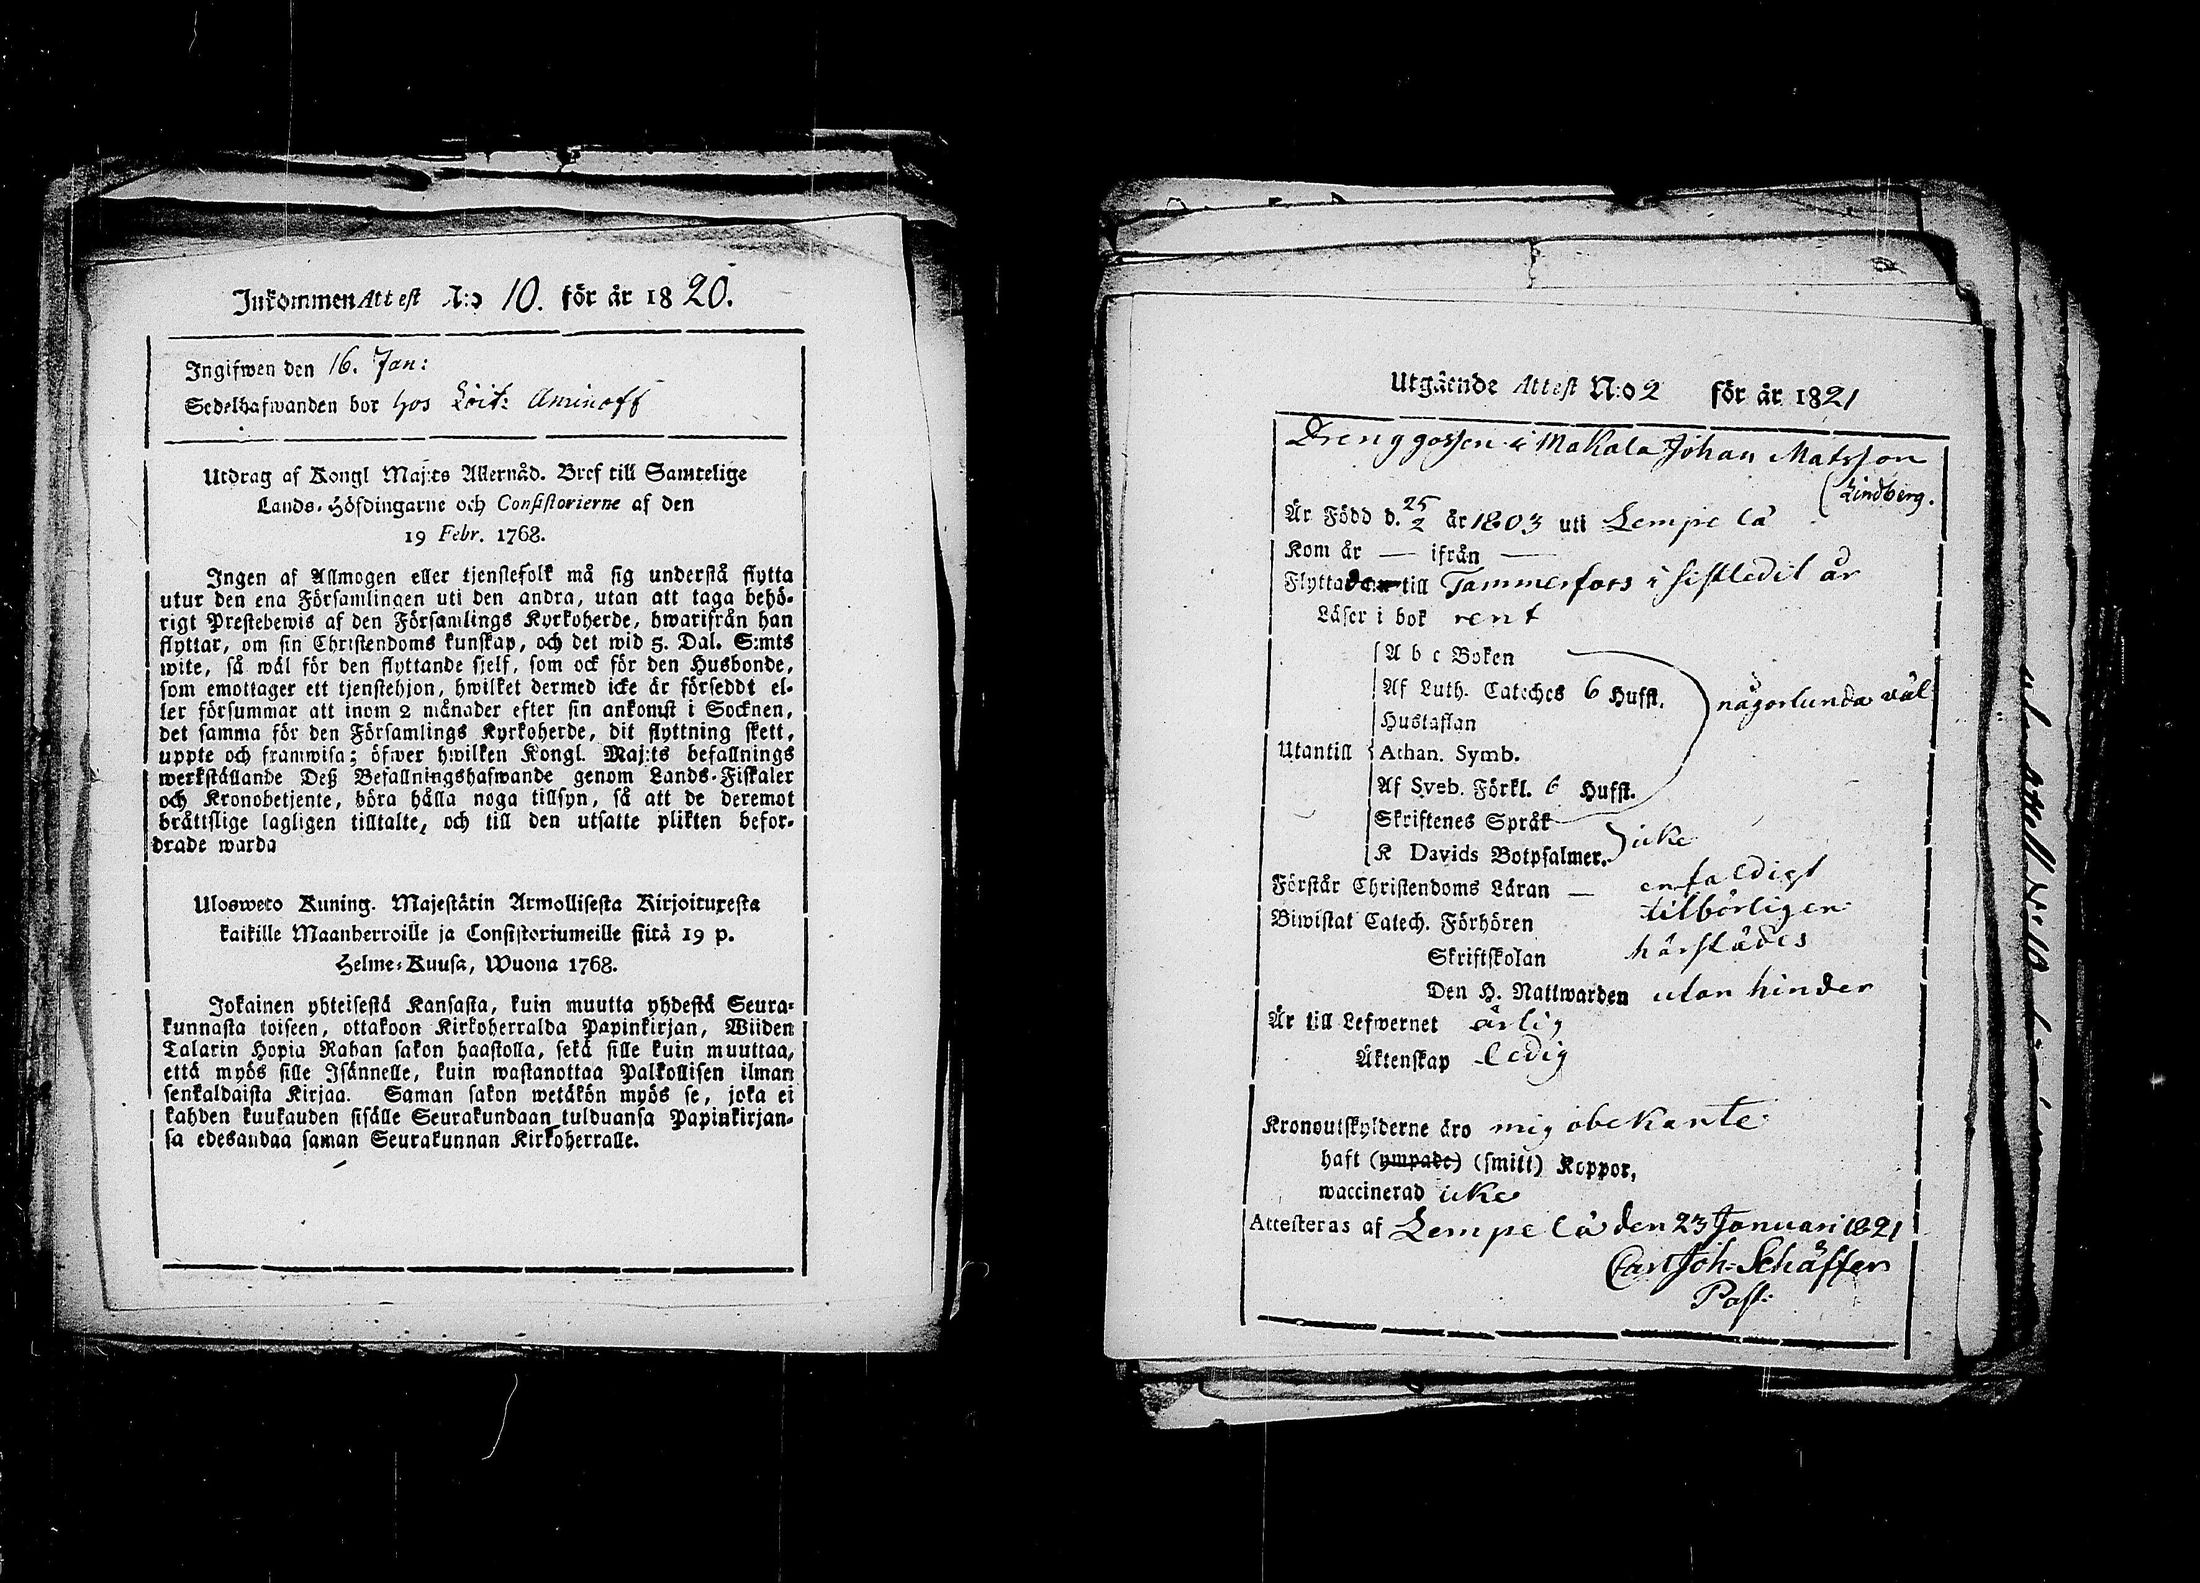 Inkommen Attest N:o 10. för år 1820.
Ingifwen den 16. Jan:
Sedelhafwanden bor hos Löit: Aminoff
Utdrag af Kongl Maj:ts Allernåd. Bref till Samtelige
Lands-Höfdingarne och Consistorierne af den
19 Febr. 1768.
Ingen af Allmogen eller tjenstefolk må sig understå flytta
utur den ena Församlingen uti den andra, utan att taga behö-
rigt Prestebewis af den Församlings Kyrkoherde, hwarifrån han
flyttar, om sin Christendoms kunskap, och det wid 5. Dal. S:mts
wite, så wäl för den flyttande sjelf, som ock för den Husbonde,
som emottager ett tjenstehjon, hwilket dermed icke är försedt el-
ler försummar att inom 2 månader efter sin ankomst i Socknen,
det samma för den Församlings Kyrkoherde, dit flyttning skett,
uppte och framwisa; öfwer hwilken Kongl. Maj:ts befallnings
werkställande Deß Befallningshafwande genom Lands-Fiskaler
och Kronobetjente, böra hålla noga tillsyn, så att de deremot
bråttslige lagligen tilltalte, och till den utsatte plikten befor-
drade warda
Ulosweto Kuning. Majestätin Armollisesta Kirjoituxesta
kaikille Maanherroille ja Consistoriumeille siitä 19 p.
Helme-Kuusa, Wuona 1768.
Jokainen yhteisestä Kansasta, kuin muutta yhdestä Seura-
kunnasta toiseen, ottakoon Kirkoherralda Papinkirjan, Wiiden
Talarin Hopia Rahan sakon haastolla, sekä sille kuin muuttaa,
että myös sille Isännelle, kuin wastanottaa Palkollisen ilman
senkaldaista Kirjaa. Saman sakon wetäkön myös se, joka ei
kahden kuukauden sisälle Seurakundaan tulduansa Papinkirjan-
sa edesandaa saman Seurakunnan Kirkoherralle.
Utgående Attest N:o 2 för år 1821
Drenggossen i Makala Johan Matsson
(Lindberg.
Är Född d. 25/2 år 1803 uti Lempelä
Kom år — ifrån —
Flyttade till Tammerfors i sistledit år
Läser i bok rent
A b c Boken
Af Luth. Cateches 6 Hufst. någorlunda wäl
Hustaflan
Utantill Athan. Symb.
Af Sveb. Förkl. 6 Hufst.
Skriftenes Språk
K Davids Botpsalmer. icke
Förstår Christendoms Läran — enfaldigt
Biwistat Catech. Förhören tilbörligen
Skriftskolan härstädes
Den H. Nattwarden utan hinder
Är till Lefwernet ärlig
Äktenskap ledig
Kronoutskylderne äro mig obekante
haft (ympade) (smitt) Koppor,
waccinerad icke
Attesteras af Lempelä den 23 Januari 1821
Carl Joh: Schäffer
Past: